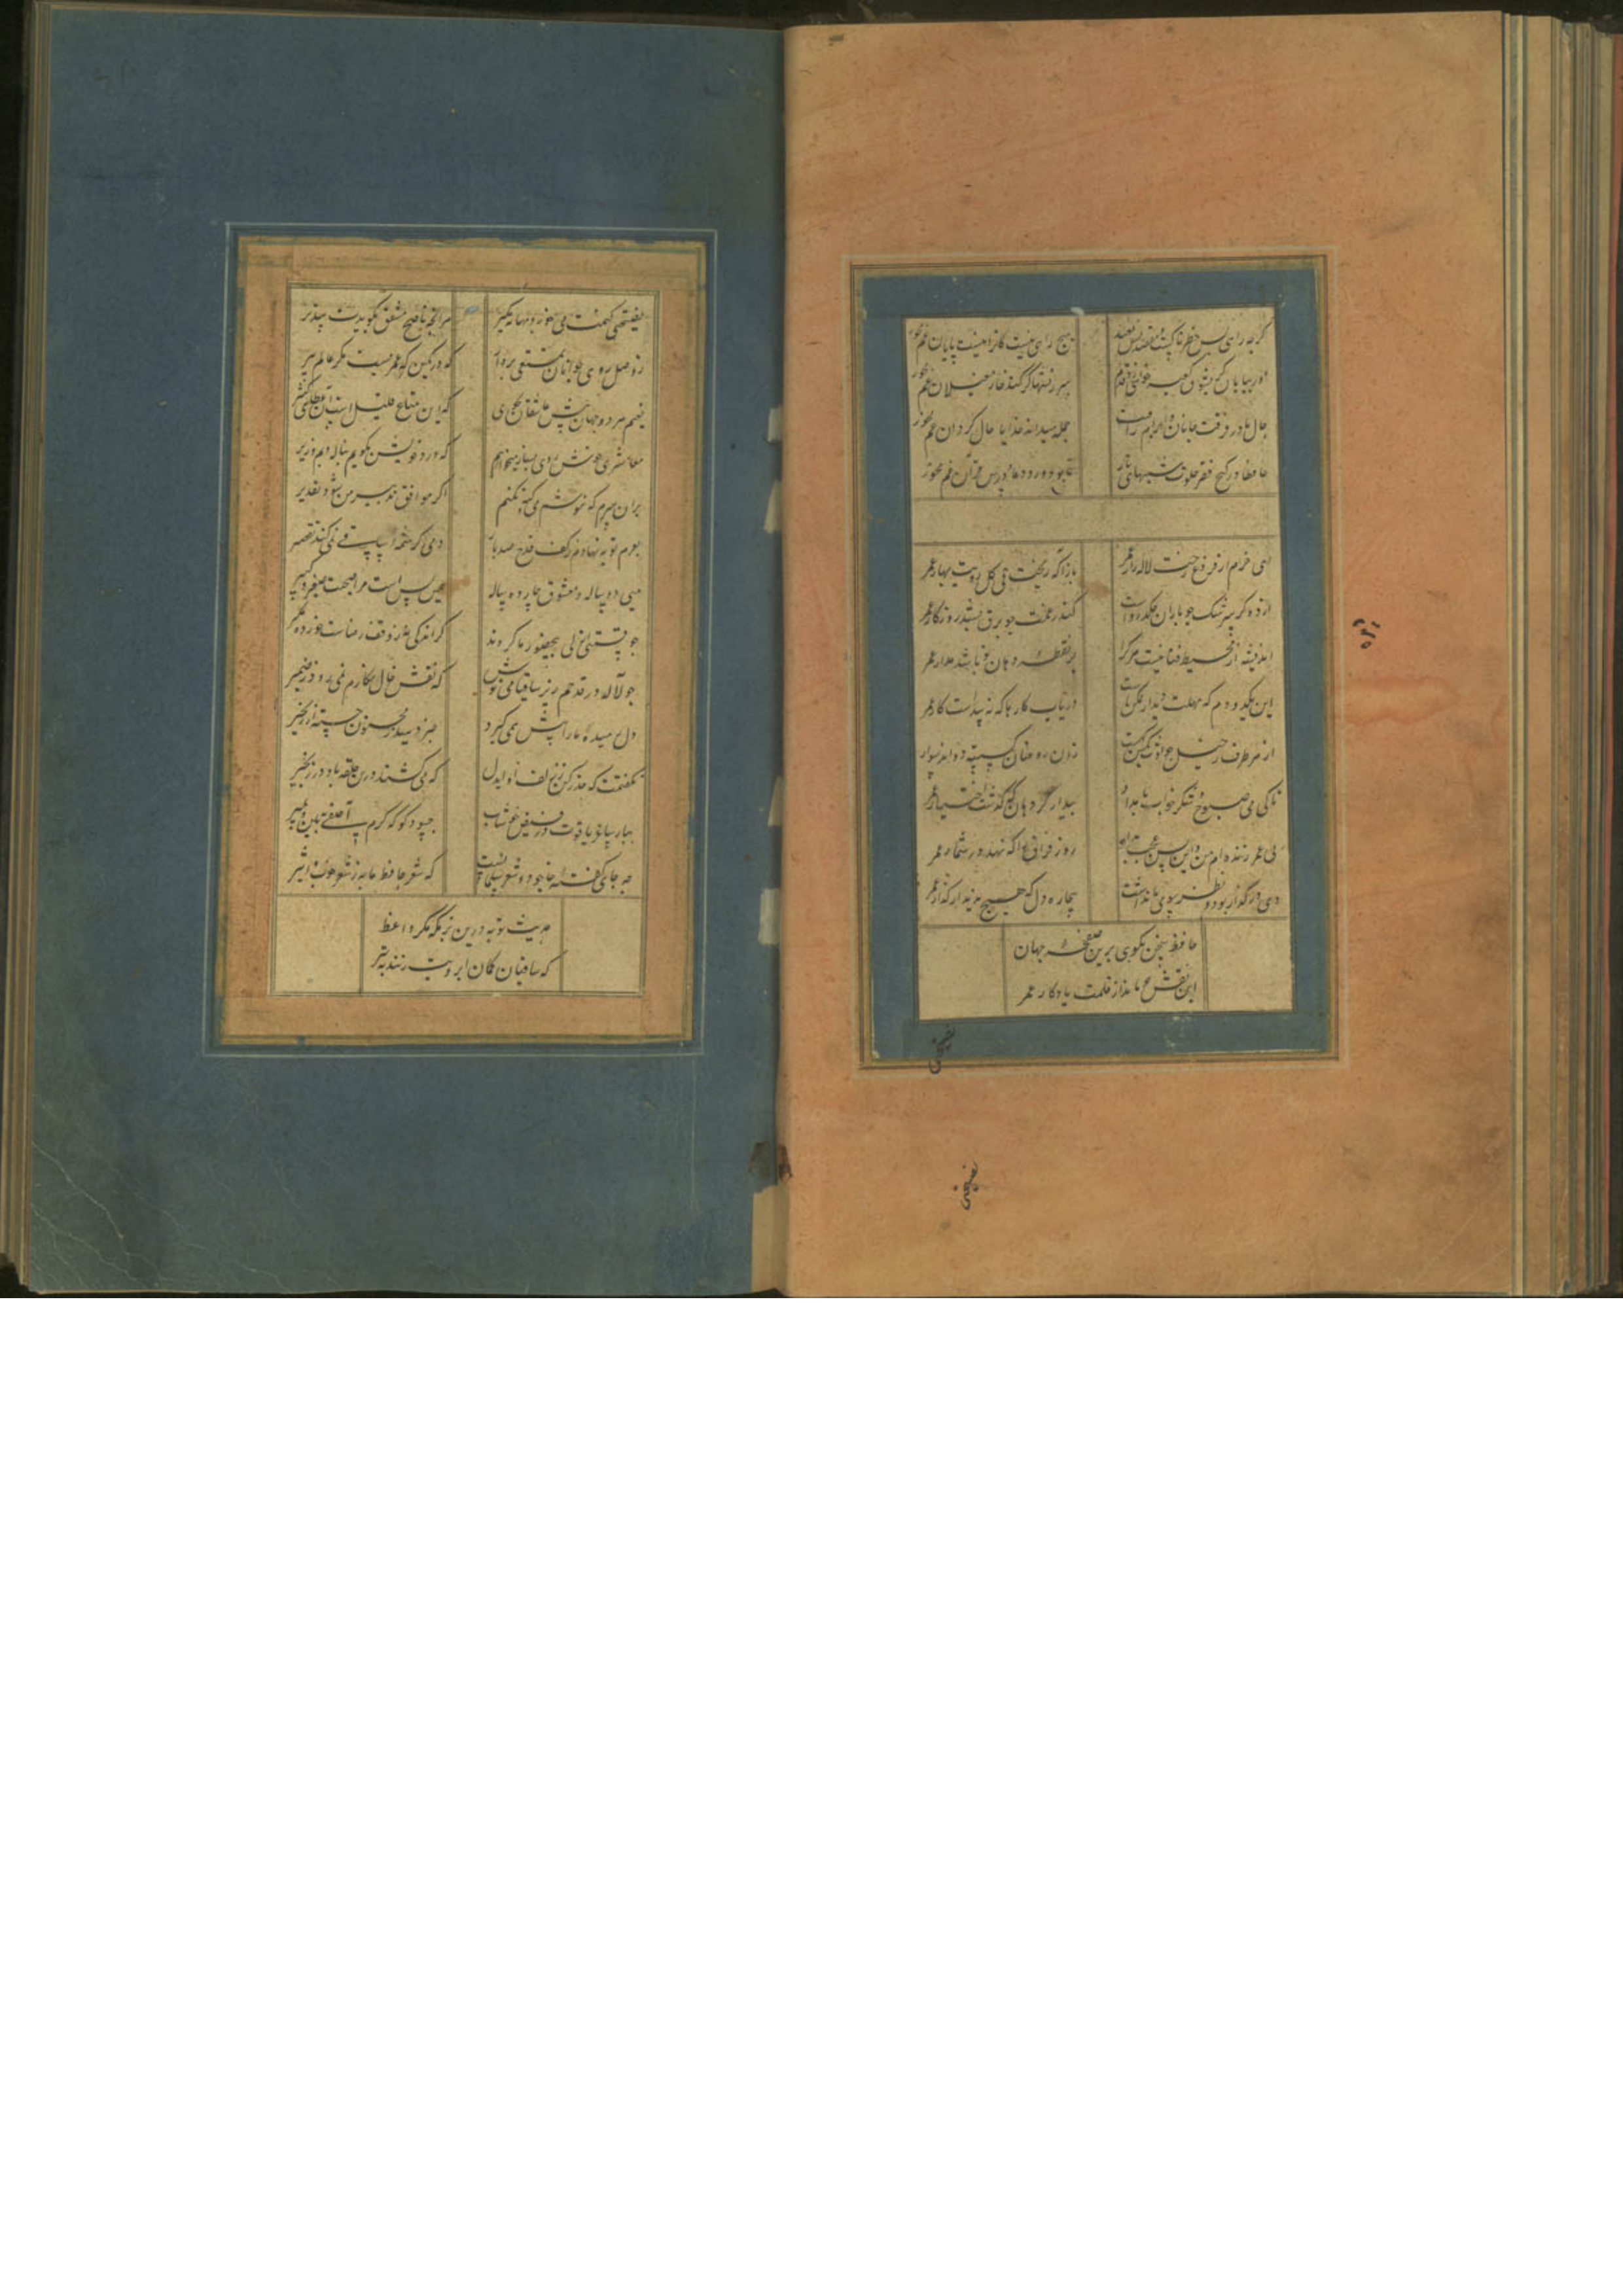 کرچه راهی بس خطرناکست و مقصد بس بعید هیچ راهی نیست کانرا نیست پایان غم مخور
در بیابان کر بشوق کعبه خواهی زد قدم سرزنشها کر کند خار مغیلان غم مخور
حال ما در فرقت جانان و ابرام رقیب جمله میداند خدای حال کردان غم مخور
حافظا در کنج فقر و خلوت شبهای تار تا بود وردت دعا و درس قرآن غم مخور
ای خرم از فروغ رخت لاله زار عمر بازآ که ریخت بی کل رویت بهار عمر
از دیده کر سرشک چو باران چکد رواست کندر غمت چو برق بشد روزکار عمر
اندیشه از محیط فنا نیست هرکرا بر نقطه دهان تو باشد مدار عمر
این یکدو دم که مهلت دیدار ممکنست دریاب کار ما که نه پیداست کار عمر
از هر طرف ز خیل حوادث کمین کهیست زان رو عنان کسسته دواند سوار
تا کی می صبوح و شکر خواب بامداد بیدار کرد هان که کذشت اختیار عمر
بی عمر زنده ام من و این بس عجب مدار روز فراق را که نهد در شمار عمر
دی در کذار بود و نظر سوی ما نداشت بیچاره دل که هیچ ندید از کذار عمر
حافظ سخن بکوی که بر صفحه جهان
این نقش ماند از قلمت یادکار عمر
نصیحتی کنمت بشنو و بهانه مکیر هر آنچه ناصح مشفق بکویدت بپذیر
ز وصل روی جوانان تمتعی بردار که در کمین که عمرست مکر عالم پیر
نعیم هر دو جهان پیش عاشقان بجوی که این متاع قلیل است
معاشری خوش و رودی بساز میخواهم که درد خویش بکویم بناله بم و زیر
بران سرم که ننوشم می و کنه نکنم اکر موافق تدبیر من شود تقدیر
بعزم توبه نهادم قدح ز کف صد بار ولی کرشمه ساقی نمی کند تقصیر
می دو ساله و معشوق چارده ساله همین بس است مرا صحبت صغیر و کبیر
چو قسمت ازلی بی حضور ما کردند کر اندکی نه بوفق رضاست خرده مکیر
چو لاله در قدحم ریز ساقیا می که نقش خال نکارم نمی رود ز ضمیر
دل رمیده ما را که پیش می کیرد خبر دهید بمجنون جسته از زنجیر
نکفتمت که حذر کن ز زلف او ایدل که می کشند درین حلقه باد در زنجیر
بیار ساغر یاقوت و در خوشاب حسود کو که کرم آصفی ببین و بمیر
چه جای کفته خواجو و شعر سلمانست که شعر حافظ ما به ز شعر خوب ظهیر
حدیث توبه درین بزمکه مکو واعظ
که ساقیان کمان ابرویت زنند بتیر